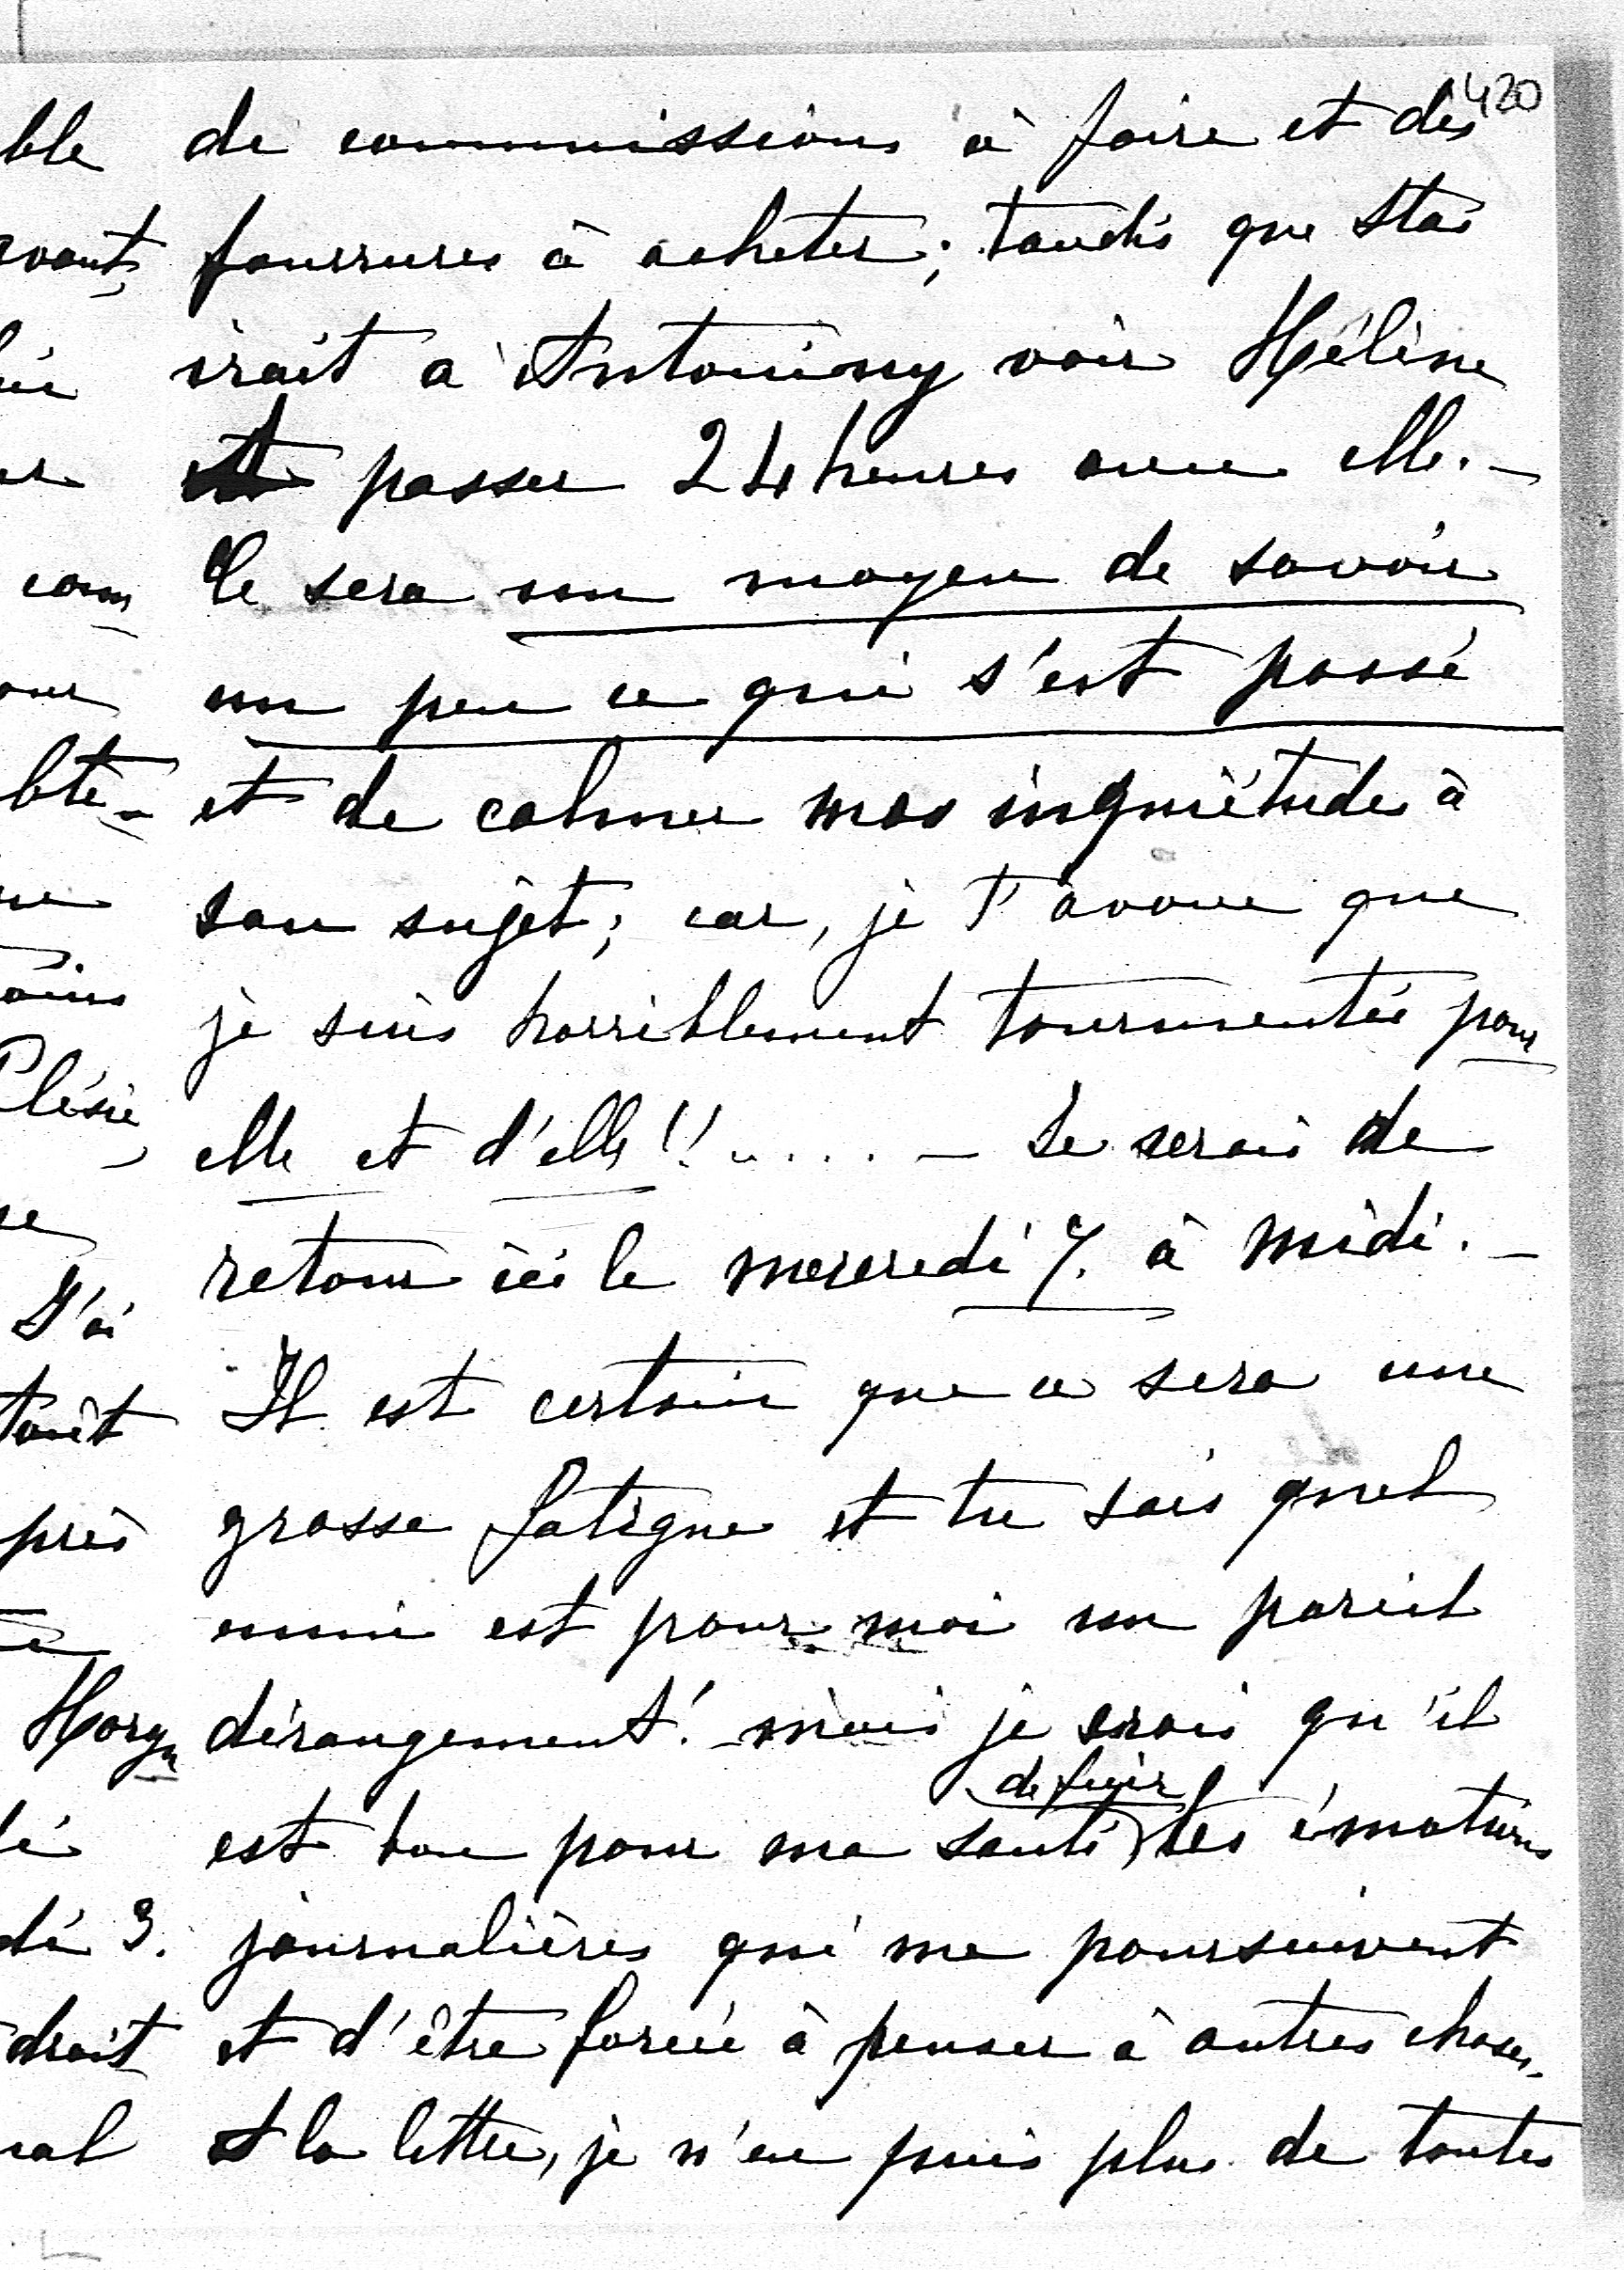 420
de commissions à faire et des
fourrures à acheter; tandis que Stas
irait à Antoniny voir Hélène
et passer 24 heures avec elle. –
Ce sera un moyen de savoir
un peu ce qui s'est passé
et de calmer mes inquiétudes à
son sujet; car, je t'avoue que
je suis horriblement tourmentée pour
elle et d'elle!!..... – Je serais de
retour ici le mercredi 7. à midi. –
Il est certain que ce sera une
grosse fatigue et tu sais quel
ennui est pour moi un pareil
dérangement! mais je crois qu'il
de fuir
est bon pour ma santé les émotions
journalières qui me poursuivent
et d'être forcée à penser à autres choses.
A la lettre, je n'en puis plus de toutes
ble
vant,
com
bte-
Clésie
J'ai
près
Hory
di 3.
droit